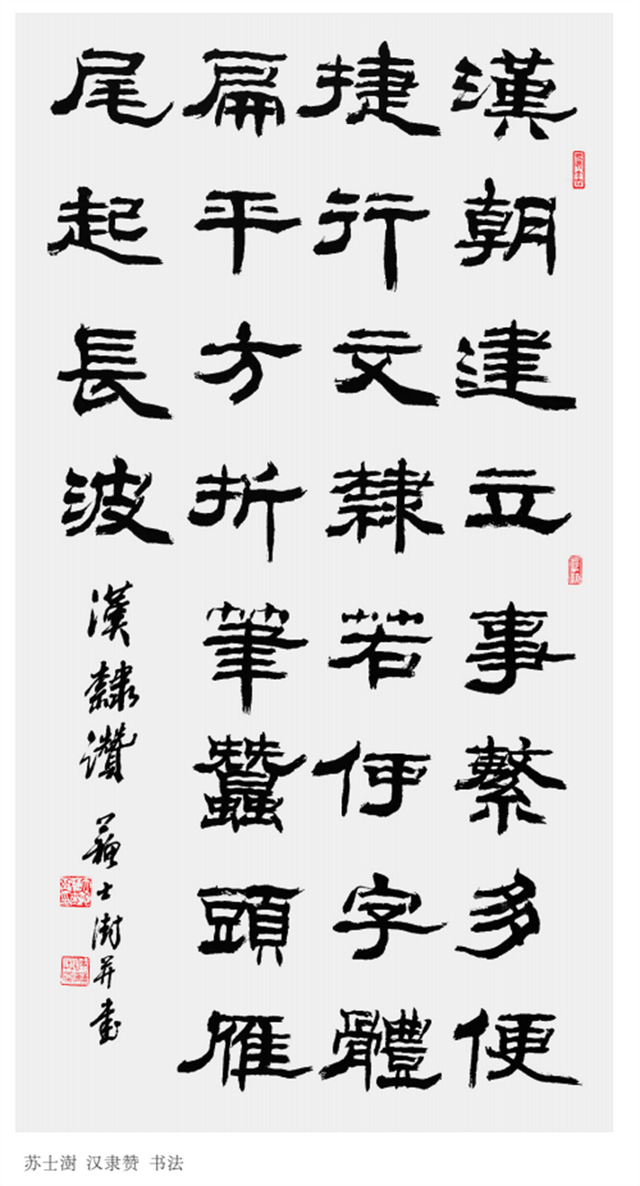 漢朝建立事繫多便
捷行文隸若何字體
扁平方折筆蠶頭雁
尾起長波
漢隸讚
蘇士澍并書
苏士澍 汉隶赞 书法